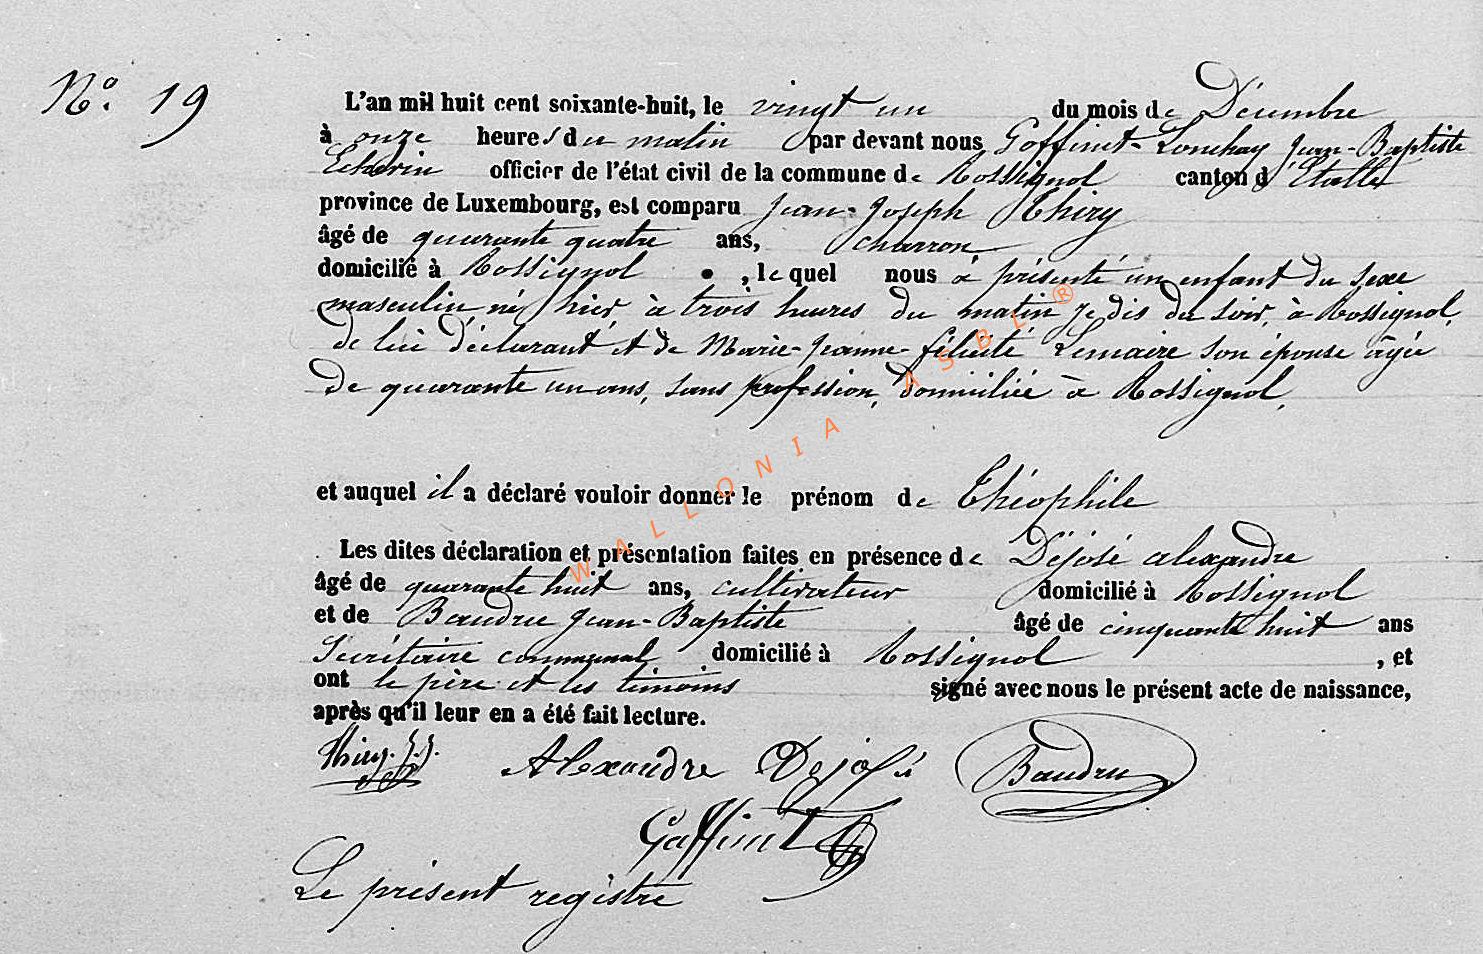 No. 19
L'an mil huit cent soixante-huit, le vingt un du mois de Décembre
à onze heures du matin par devant nous Goffinet-Lonchay Jean-Baptiste
Echevin officier de l'état civil de la commune de Rossignol canton d'Etalle
province de Luxembourg, est comparu Jean-Joseph Thiry
âgé de quarante quatre ans, charron
domicilié à Rossignol , lequel nous à présenté un enfant du sexe
masculin né hier à trois heures du matin je dis du soir, à Rossignol,
de lui déclarant et de Marie-Jeanne-félicité Lemaire son épouse âgée
de quarante un ans, sans profession, domiciliée à Rossignol,
et auquel il a déclaré vouloir donner le prénom de Théophile
Les dites déclaration et présentation faites en présence de Déjosé alexandre
âgé de quarante huit ans, cultivateur domicilié à Rossignol
et de Baudru Jean-Baptiste âgé de cinquante huit ans
Sécrétaire communal domicilié à Rossignol , et
ont le père et les témoins signé avec nous le présent acte de naissance,
après qu'il leur en a été fait lecture.
Thiry. J.J. Alexandre Dejosé Baudru
Goffinet
Le présent registre
WALLONIA ASBL ®